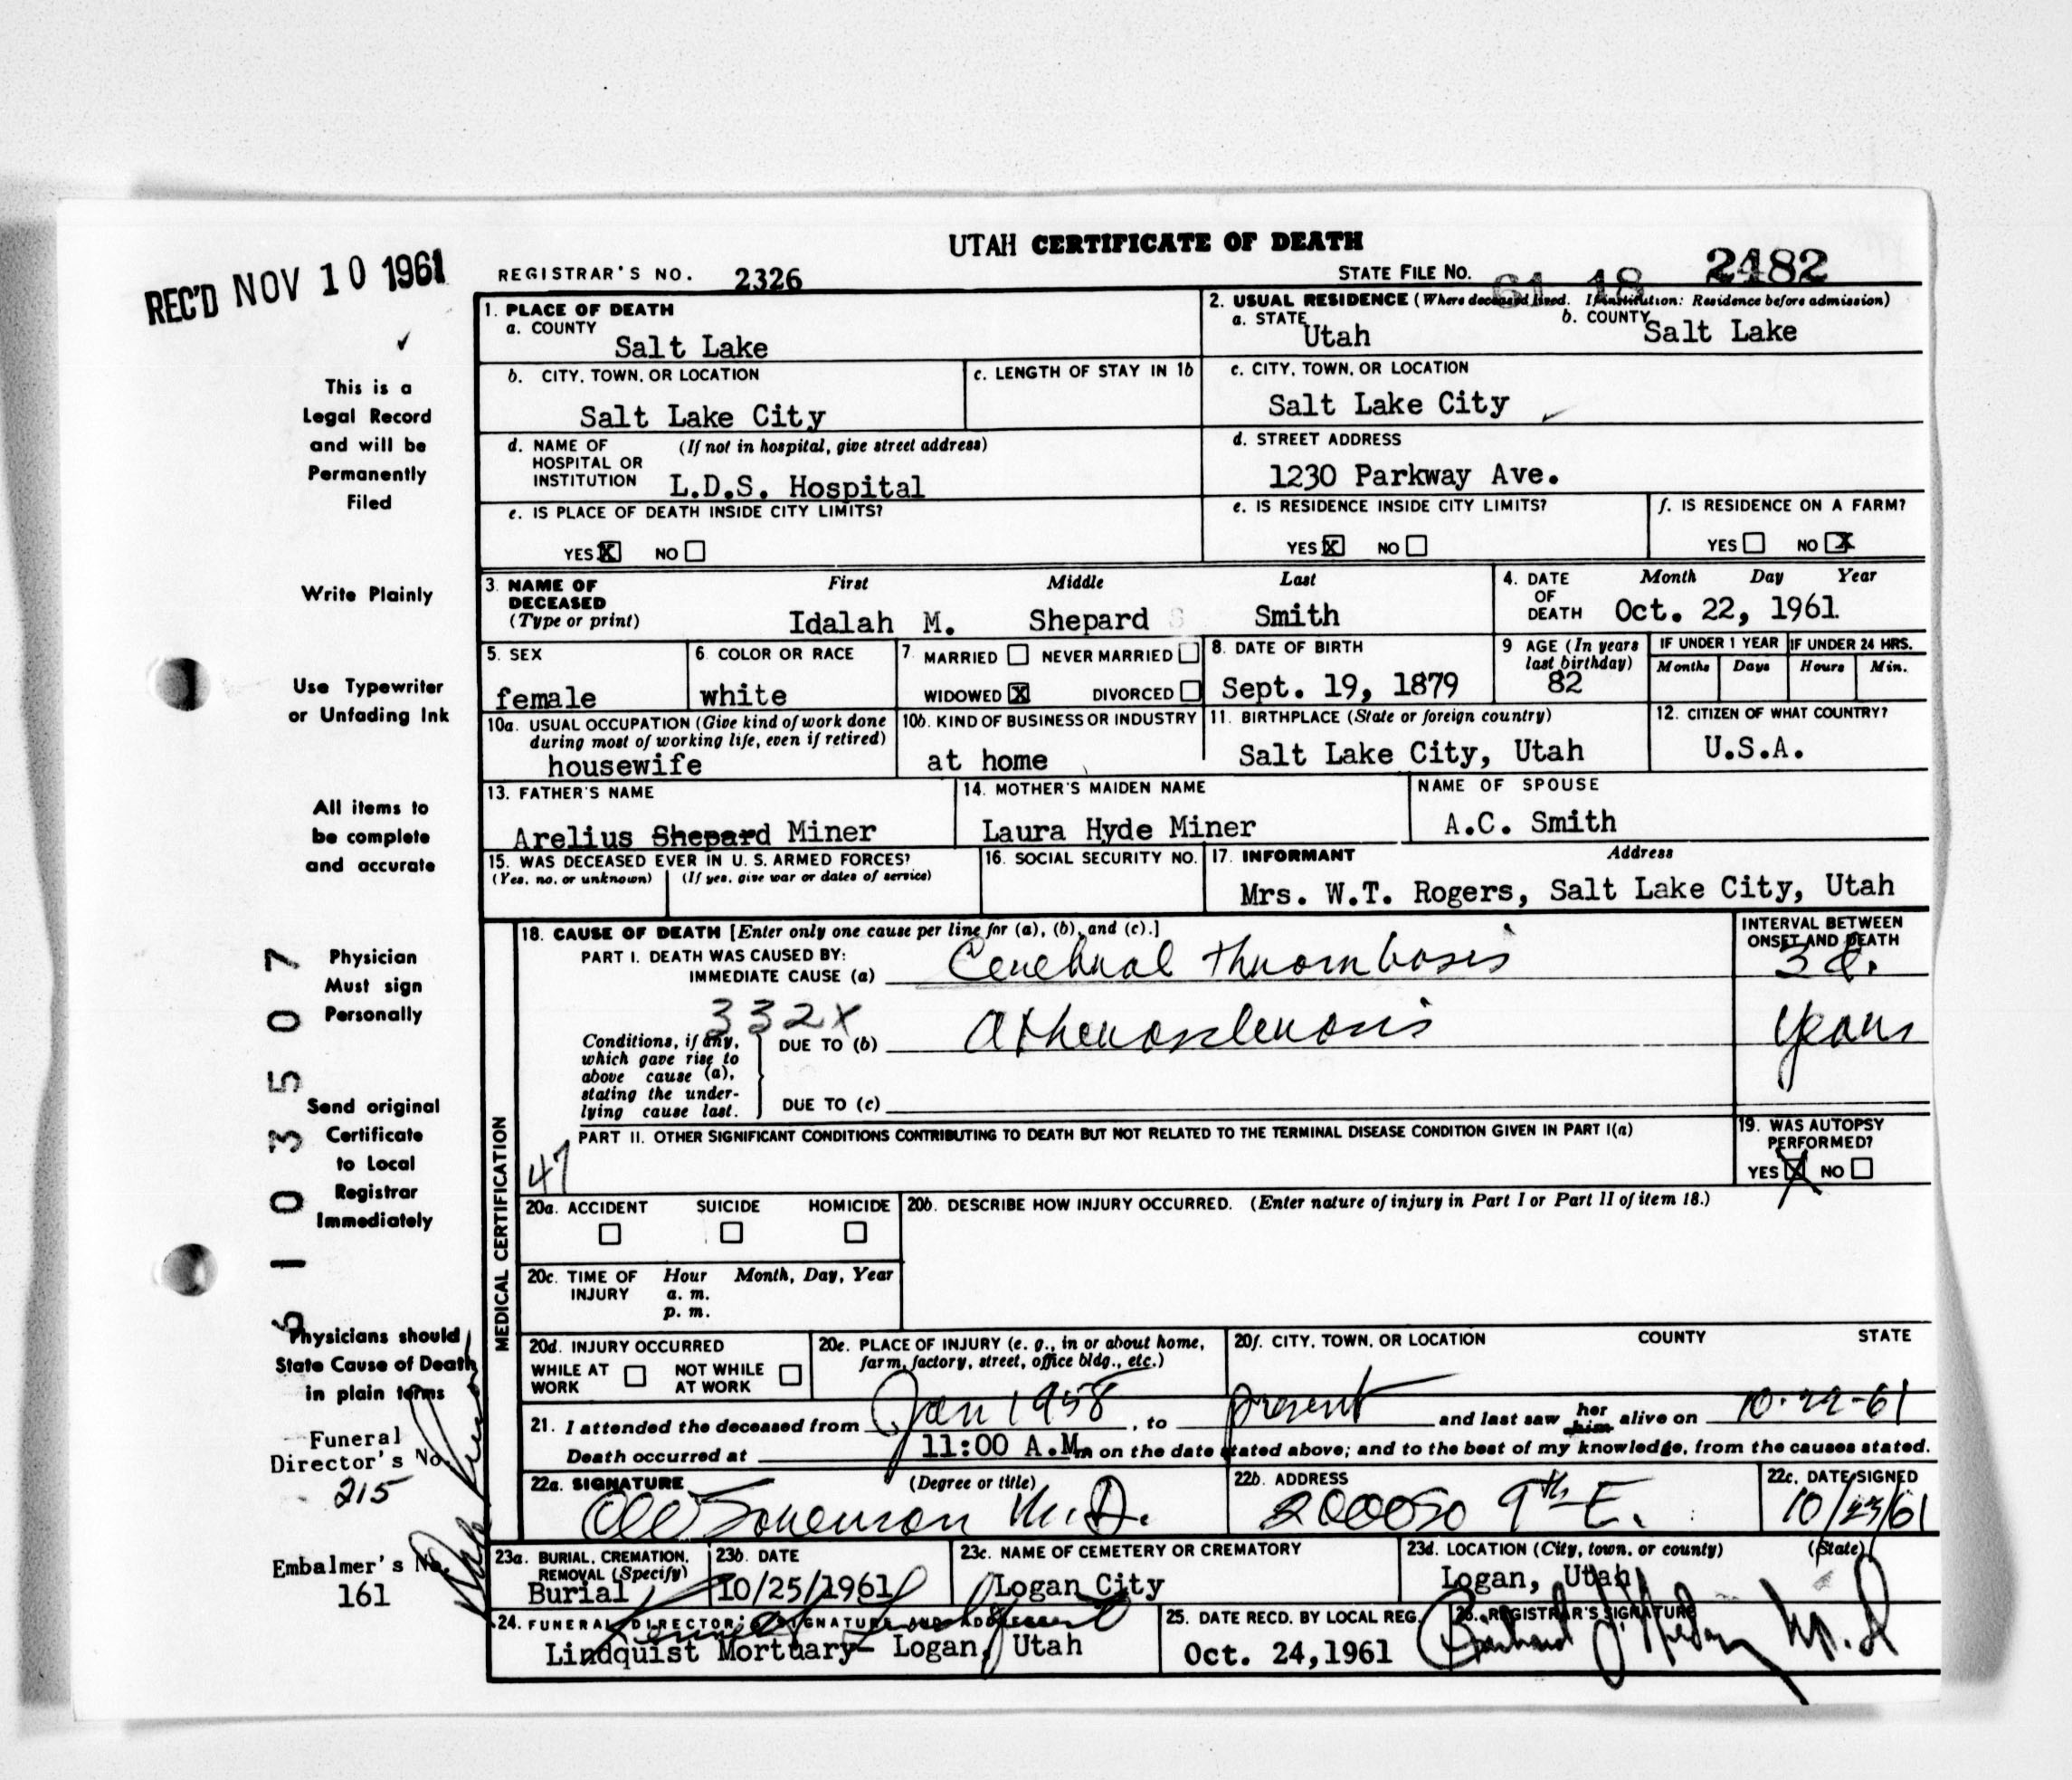 UTAH CERTIFICATE OF DEATH
REC'D NOV 10 1961
REGISTRAR'S NO. 2326
STATE FILE NO. 61 18 2482
1. PLACE OF DEATH
a. COUNTY
Salt Lake
2. USUAL RESIDENCE (Where deceased lived. If institution: Residence before admission)
a. STATE Utah
b. COUNTY Salt Lake
b. CITY, TOWN, OR LOCATION
Salt Lake City
c. LENGTH OF STAY IN 1b
c. CITY, TOWN, OR LOCATION
Salt Lake City
d. NAME OF HOSPITAL OR INSTITUTION (If not in hospital, give street address)
L.D.S. Hospital
d. STREET ADDRESS
1230 Parkway Ave.
e. IS PLACE OF DEATH INSIDE CITY LIMITS?
YES X NO
e. IS RESIDENCE INSIDE CITY LIMITS?
YES X NO
f. IS RESIDENCE ON A FARM?
YES NO X
3. NAME OF DECEASED (Type or print)
First Middle Last
Idalah M. Shepard Smith
4. DATE OF DEATH
Month Day Year
Oct. 22, 1961
5. SEX
female
6. COLOR OR RACE
white
7. MARRIED NEVER MARRIED
WIDOWED X DIVORCED
8. DATE OF BIRTH
Sept. 19, 1879
9 AGE (In years last birthday)
82
IF UNDER 1 YEAR
Months Days
IF UNDER 24 HRS.
Hours Min.
10a. USUAL OCCUPATION (Give kind of work done during most of working life, even if retired)
housewife
10b. KIND OF BUSINESS OR INDUSTRY
at home
11. BIRTHPLACE (State or foreign country)
Salt Lake City, Utah
12. CITIZEN OF WHAT COUNTRY?
U.S.A.
13. FATHER'S NAME
Arelius Shepard Miner
14. MOTHER'S MAIDEN NAME
Laura Hyde Miner
NAME OF SPOUSE
A.C. Smith
15. WAS DECEASED EVER IN U. S. ARMED FORCES?
(Yes, no, or unknown) (If yes, give war or dates of service)
16. SOCIAL SECURITY NO.
17. INFORMANT Address
Mrs. W.T. Rogers, Salt Lake City, Utah
18. CAUSE OF DEATH [Enter only one cause per line for (a), (b), and (c).]
PART I. DEATH WAS CAUSED BY:
IMMEDIATE CAUSE (a) Cerebral thrombosis
332X
Conditions, if any, which gave rise to above cause (a), stating the underlying cause last.
DUE TO (b) Atherosclerosis
DUE TO (c)
INTERVAL BETWEEN ONSET AND DEATH
3 d.
years
PART II. OTHER SIGNIFICANT CONDITIONS CONTRIBUTING TO DEATH BUT NOT RELATED TO THE TERMINAL DISEASE CONDITION GIVEN IN PART I(a)
47
19. WAS AUTOPSY PERFORMED?
YES X NO
MEDICAL CERTIFICATION
20a. ACCIDENT SUICIDE HOMICIDE
20b. DESCRIBE HOW INJURY OCCURRED. (Enter nature of injury in Part I or Part II of item 18.)
20c. TIME OF INJURY Hour Month, Day, Year
a. m.
p. m.
20d. INJURY OCCURRED
WHILE AT WORK NOT WHILE AT WORK
20e. PLACE OF INJURY (e. g., in or about home, farm, factory, street, office bldg., etc.)
20f. CITY, TOWN, OR LOCATION COUNTY STATE
21. I attended the deceased from Jan 1958, to present and last saw her him alive on 10-22-61
Death occurred at 11:00 A.M. m on the date stated above; and to the best of my knowledge, from the causes stated.
22a. SIGNATURE (Degree or title)
Sorenson M.D.
22b. ADDRESS
9th E.
22c. DATE SIGNED
10/23/61
23a. BURIAL, CREMATION, REMOVAL (Specify)
Burial
23b. DATE
10/25/1961
23c. NAME OF CEMETERY OR CREMATORY
Logan City
23d. LOCATION (City, town, or county) (State)
Logan, Utah
24. FUNERAL DIRECTOR'S SIGNATURE AND ADDRESS
Lindquist Mortuary- Logan, Utah
25. DATE RECD. BY LOCAL REG.
Oct. 24,1961
26. REGISTRAR'S SIGNATURE
M.D
This is a
Legal Record
and will be
Permanently
Filed
Write Plainly
Use Typewriter
or Unfading Ink
All items to
be complete
and accurate
Physician
Must sign
Personally
Send original
Certificate
to Local
Registrar
Immediately
Physicians should
State Cause of Death
in plain terms
Funeral
Director's No.
215
Embalmer's No.
161
61 03507